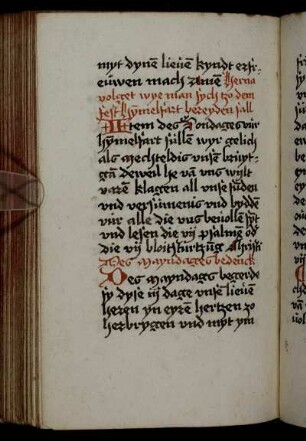 myt dynē lieuē kyndt erfr-
euwen mach Amen Herna
volget wye man sych tzo dem
fest Hymelfart bereyden sall
Item des Sondages vur
hymelfart sullē wyr gelich
als mechteldis vnse bruyt-
gā dewyl he vā vns wilt
varē klagen all vnse sūden
vnd versumenis vnd bydde
vur alle die vns beuolē synt
vnd lesen die vij psalmē od
die vij bloitsturtzūg Christi
Des mayndages bedenck
Des mayndages begerde
sy dyse iij dage vnse lieuē
heren yn eyrē hertzen zo
herbrygen vnd myt ym